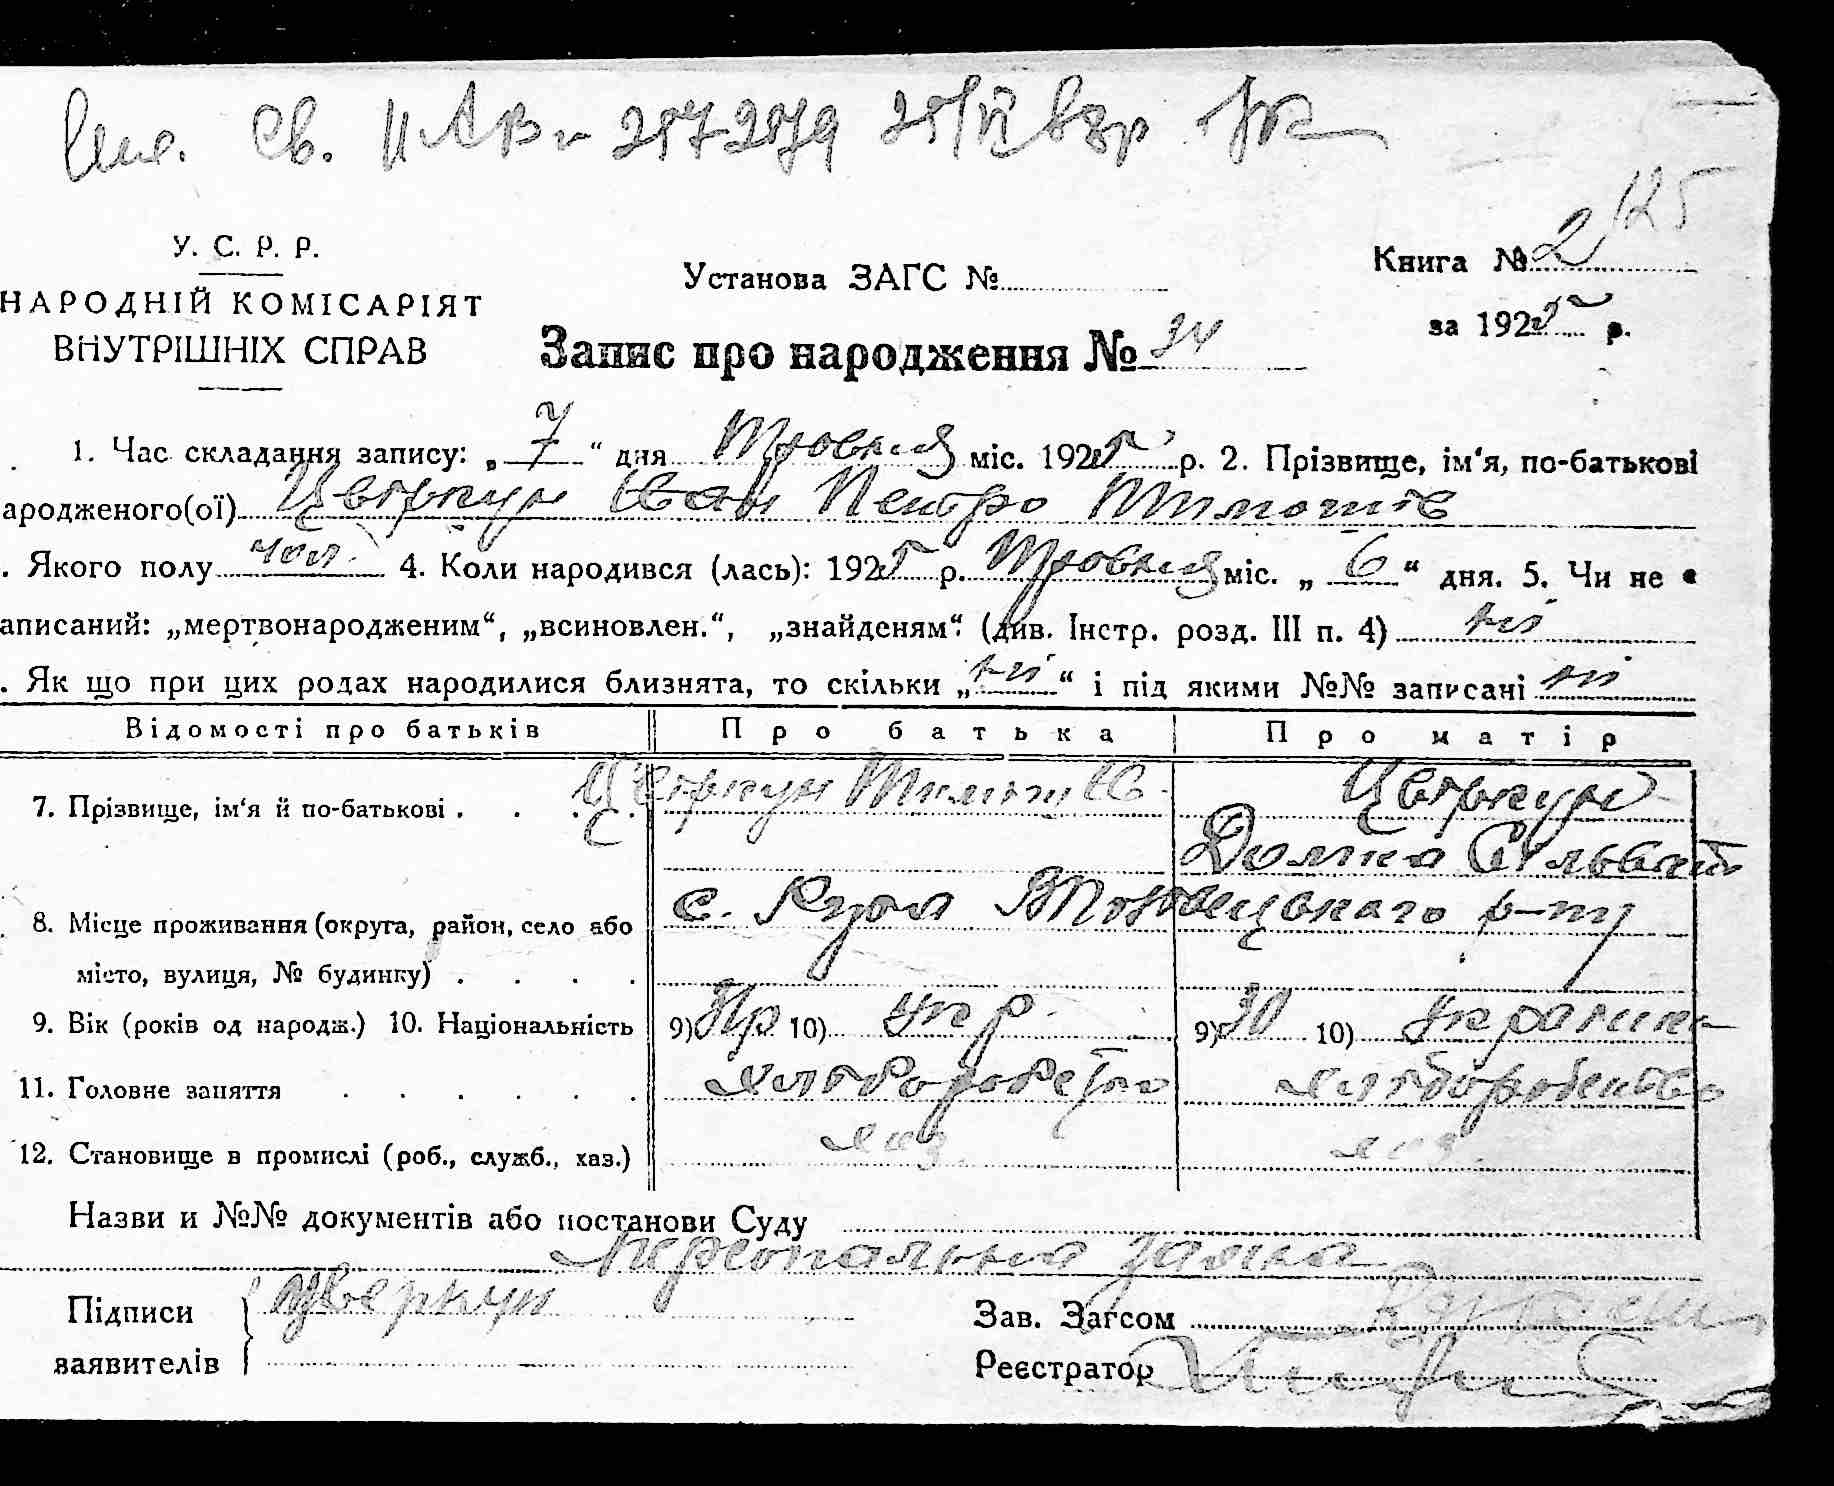 Св. II АВ № 2572579
125
У. С. Р. Р.
НАРОДНІЙ КОМІСАРІЯТ
ВНУТРІШНІХ СПРАВ
Установа ЗАГС №
Книга № 2
за 1925 р.
Запис про народження № 34
1. Час складання запису: „7“ дня Травня міс. 1925 р. 2. Прізвище, ім‘я, по-батькові
ародженого(ої) Цвіркун Іван Петро Тимошів
. Якого полу чол. 4. Коли народився (лась): 1925 р. Травня міс. „6“ дня. 5. Чи не
аписаний: „мертвонародженим“, „всиновлен.“, „знайденям“: (див. Інстр. розд. III п. 4) ні
. Як що при цих родах народилися близнята, то скільки „ні“ і під якими №№ записані ні
Відомості про батьків Про батька Про матір
7. Прізвище, ім‘я й по-батькові . . . . Цвіркун Цвіркун
Домка
8. Місце проживання (округа, район, село або с. р-ну
місто, вулиця, № будинку) . . . .
9. Вік (років од народж.) 10. Національність 9) 10) укр. 9) 30 10)
11. Головне заняття . . . . . . хліборобство хліборобство
12. Становище в промислі (роб., служб., хаз.) хаз. хаз.
Назви и №№ документів або постанови Суду
Персональна заява
Підписи Цверкун Зав. Загсом
заявителів Реєстратор